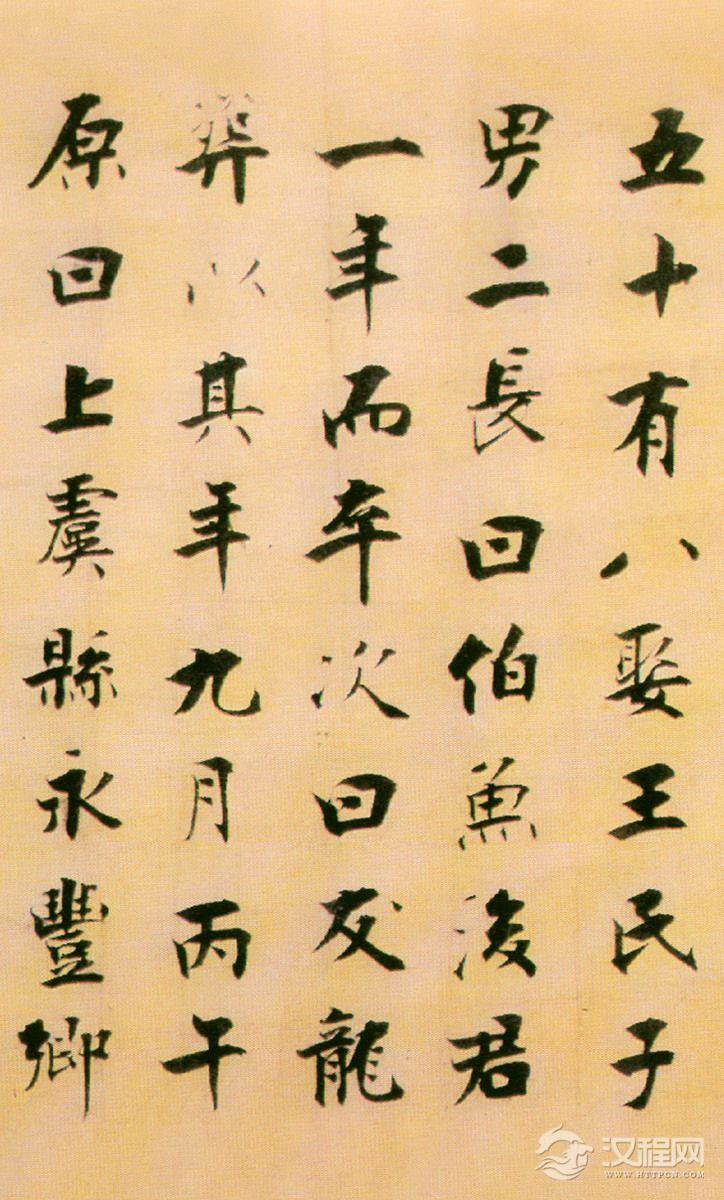 五十有八娶王民子
男二長曰伯魚後君
一年而卒次曰友龍
葬以其年九月丙午
原曰上虞縣永豐鄉
汉程网
WWW.HTTPCN.COM